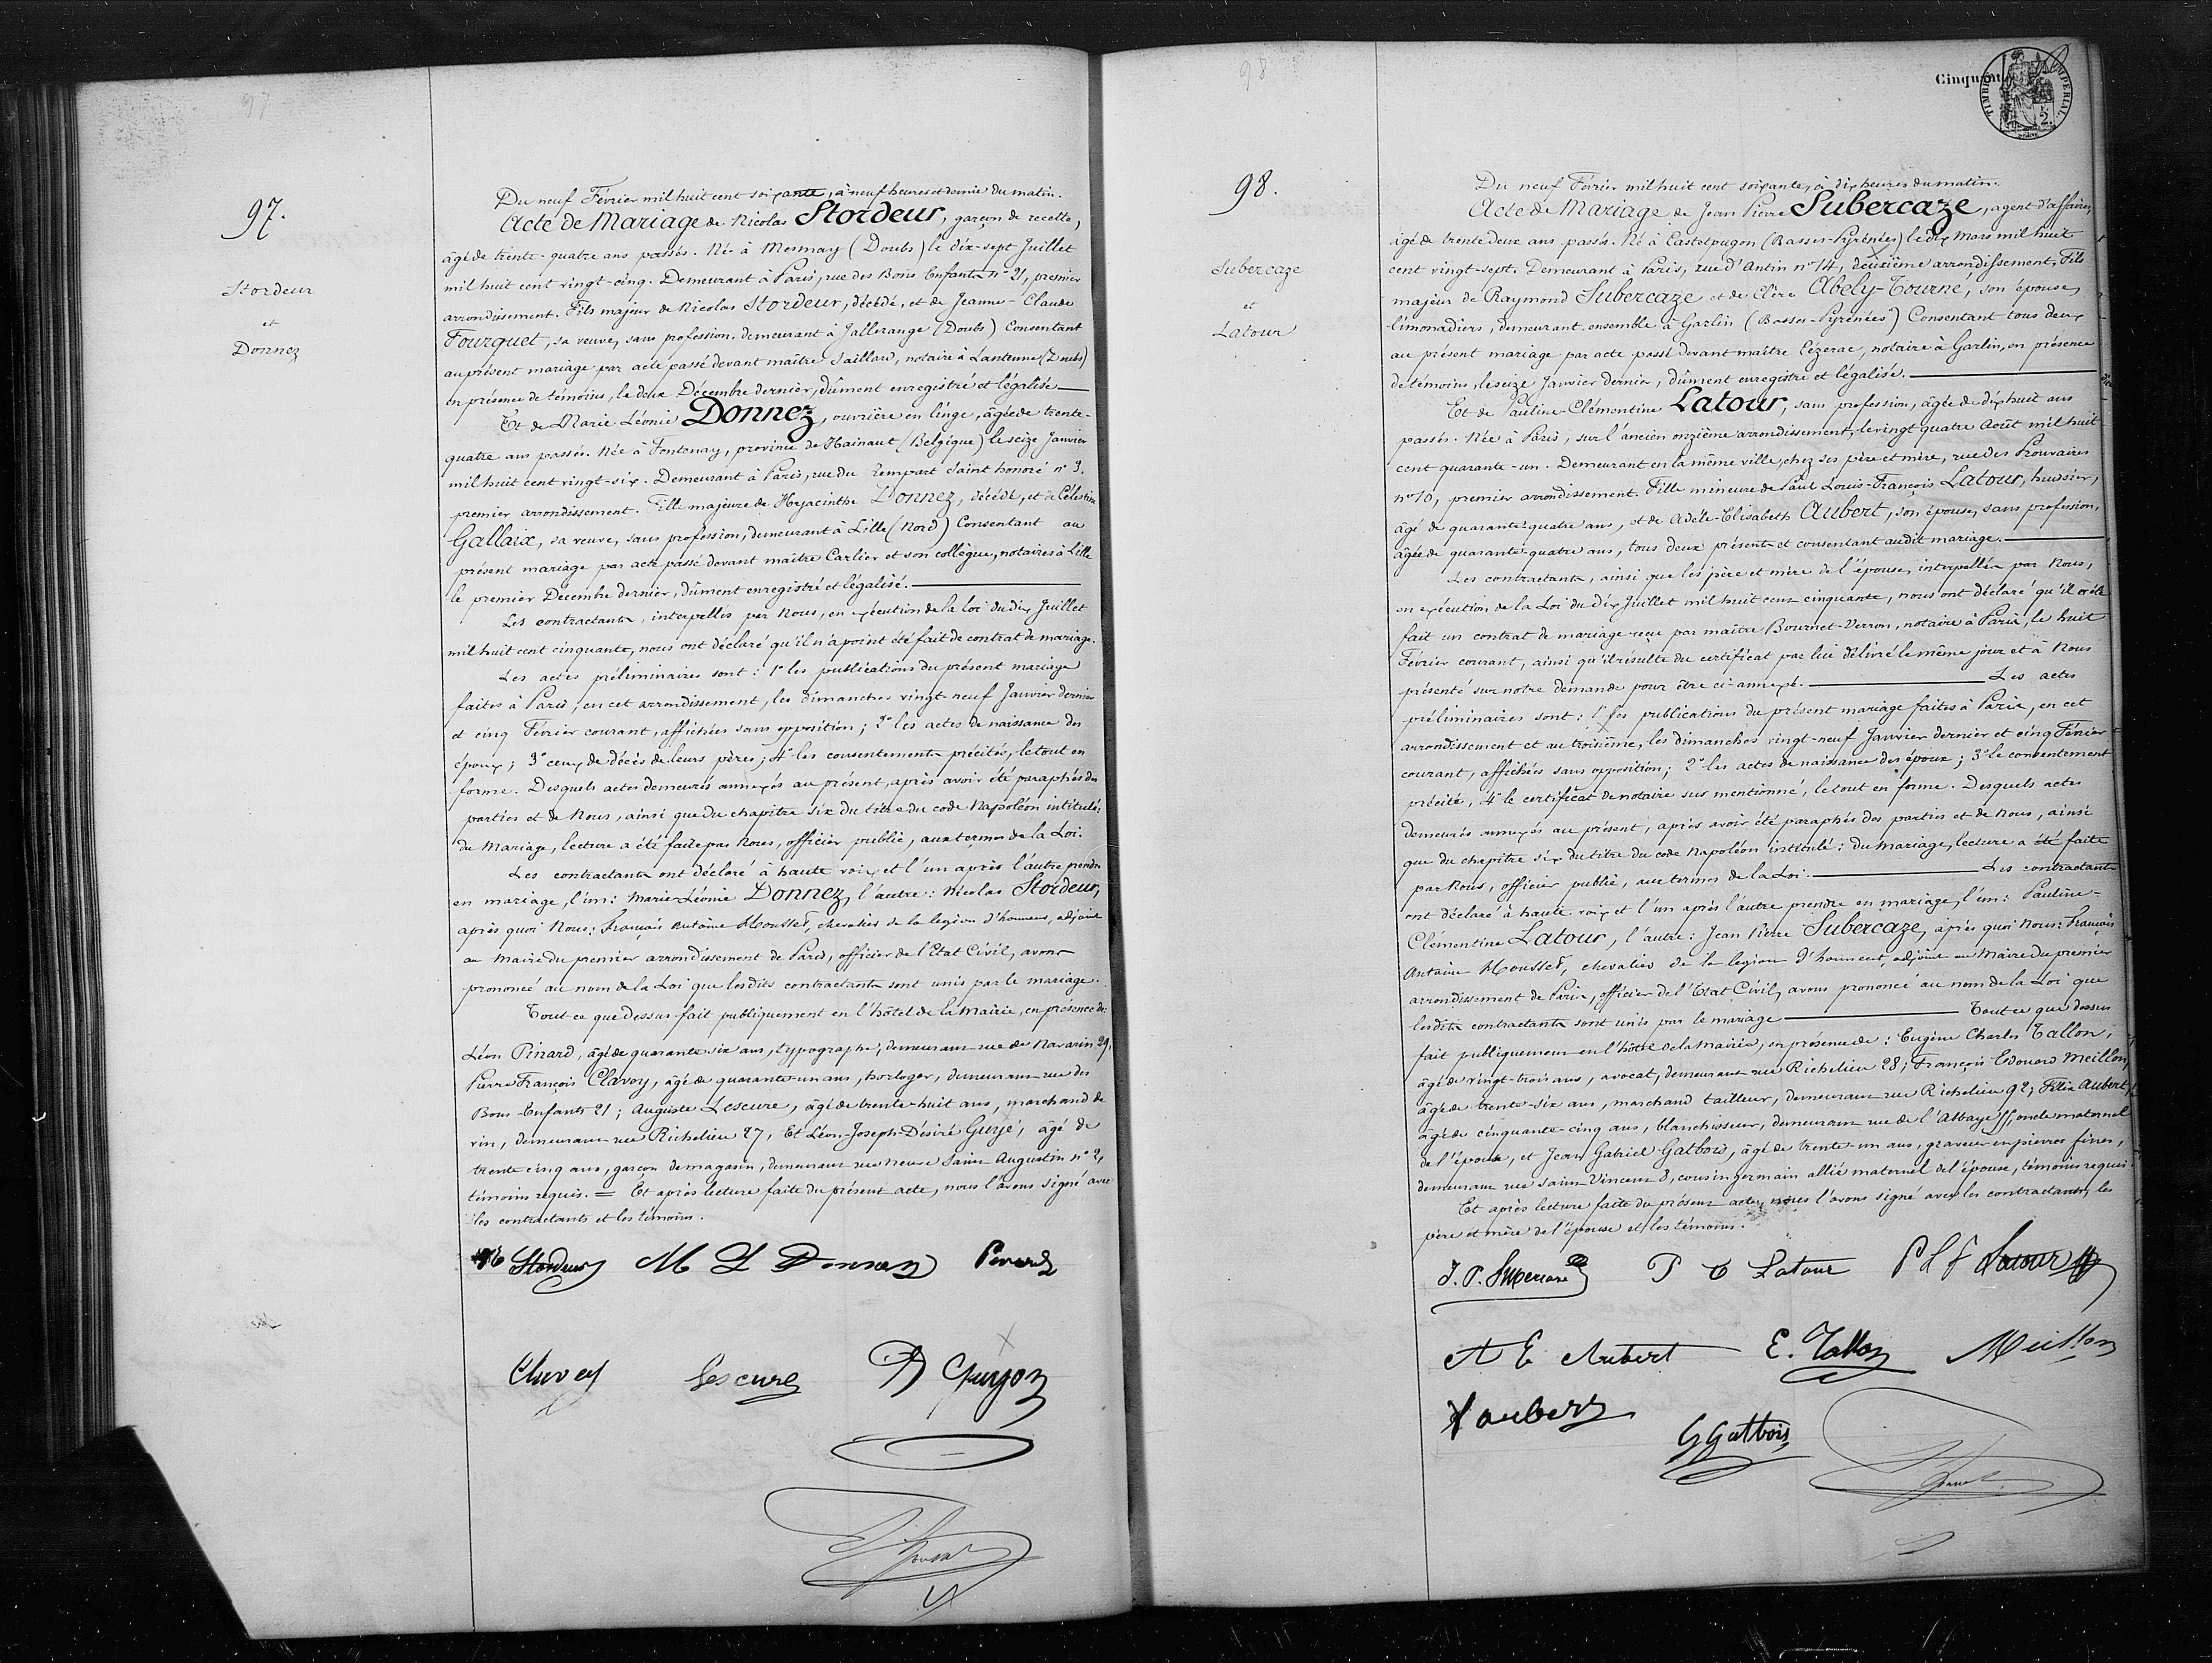 97
97.
Stordeur
et
Donnez
Du neuf Février mil huit cent soixante, à neuf heures et demie du matin.
Acte de Mariage de Nicolas Stordeur, garçon de recette,
âgé de trente-quatre ans passés. Né à Mesmay (Doubs) le dix-sept Juillet
mil huit cent vingt-cinq. Demeurant à Paris, rue des Bons Enfants n° 21, premier
arrondissement. Fils majeur de Nicolas Stordeur, décédé, et de Jeanne-Claude
Fourquet, sa veuve, sans profession, demeurant à Jallerange (Doubs) Consentant
au présent mariage par acte passé devant maître Saillard, notaire à Lantenne (Doubs)
en présence de témoins, le deux Décembre dernier, dûment enregistré et légalisé
Et de Marie Léonie Donnez, ouvrière en linge, âgée de trente-
quatre ans passés. Née à Fontenay, province de Hainaut (Belgique) le seize Janvier
mil huit cent vingt-six. Demeurant à Paris, rue du Rempart Saint honoré n° 9,
premier arrondissement. Fille majeure de Hyacinthe Donnez, décédé, et de Célestine
Gallaix, sa veuve, sans profession, demeurant à Lille (Nord) Consentant au
présent mariage par acte passé devant maître Carlier et son collègue, notaires à Lille
le premier Décembre dernier, dûment enregistré et légalisé.
Les contractants, interpellés par Nous, en exécution de la loi du dix Juillet
mil huit cent cinquante, nous ont déclaré qu'il n'a point été fait de contrat de mariage.
Les actes préliminaires sont : 1° les publications du présent mariage
faites à Paris, en cet arrondissement, les dimanches vingt-neuf Janvier dernier
et cinq Février courant, affichées sans opposition; 2° les actes de naissance des
époux; 3° ceux de décès de leurs pères; 4° les consentements précités, le tout en
forme. Desquels actes demeurés annexés au présent, après avoir été paraphés des
parties et de Nous, ainsi que du chapitre six du titre du code Napoléon intitulé:
du Mariage, lecture a été faite par Nous, officier public, aux termes de la Loi.
Les contractants ont déclaré à haute voix et l'un après l'autre prendre
en mariage, l'un: Marie-Léonie Donnez, l'autre: Nicolas Stordeur,
après quoi Nous: François Antoine Mousset, chevalier de la légion d'honneur, adjoint
au Maire du premier arrondissement de Paris, officier de l'Etat Civil, avons
prononcé au nom de la Loi que lesdits contractants sont unis par le mariage.
Tout ce que dessus fait publiquement en l'hôtel de la Mairie, en présence de:
Léon Pinard, âgé de quarante six ans, typographe, demeurant rue de Navarin 29,
Pierre François Clavoy, âgé de quarante-un ans, horloger, demeurant rue des
Bons-Enfants 21; Auguste Lescure, âgé de trente-huit ans, marchand de
vin, demeurant rue Richelieu 27, Et Léon-Joseph-Désiré Guyé, âgé de
trente cinq ans, garçon de magasin, demeurant rue neuve Saint Augustin n° 2,
témoins requis. = Et après lecture faite du présent acte, nous l'avons signé avec
les contractants et les témoins.
Stordeur M L Donnez Pinard
Clavoy Lescure D Guyon
98
98.
Subercaze
et
Latour
Cinquante
TIMBRE IMPERIAL
2
Du neuf Février mil huit cent soixante, à dix heures du matin.
Acte de Mariage de Jean Pierre Subercaze, agent d'affaires,
âgé de trente deux ans passés. Né à Castetpugon (Basses-Pyrénées) le dix Mars mil huit
cent vingt-sept. Demeurant à Paris, rue d'Antin n° 14, deuxième arrondissement, Fils
majeur de Raymond Subercaze et de Clère Abely-Tourné, son épouse,
limonadiers, demeurant ensemble à Garlin (Basses-Pyrénées) Consentant tous deux
au présent mariage par acte passé devant maître Cézerac, notaire à Garlin, en présence
de témoins, le seize Janvier dernier, dûment enregistré et légalisé.
Et de Pauline-Clémentine Latour, sans profession, âgée de dix huit ans
passés. Née à Paris, sur l'ancien onzième arrondissement, le vingt quatre Août mil huit
cent quarante-un. Demeurant en la même ville, chez ses père et mère, rue des Prouvaires
n° 10, premier arrondissement. Fille mineure de Paul Louis-François Latour, huissier,
âgé de quarante-quatre ans, et de Adèle-Elisabeth Aubert, son épouse, sans profession,
âgée de quarante-quatre ans, tous deux présents et consentant audit mariage.
Les contractants, ainsi que les père et mère de l'épouse, interpellés par Nous,
en exécution de la Loi du Dix Juillet mil huit cent cinquante, nous ont déclaré qu'il a été
fait un contrat de mariage reçu par maître Bournet-Verron, notaire à Paris, le huit
Février courant, ainsi qu'il résulte du certificat par lui délivré le même jour et à Nous
présenté sur notre demande pour être ci-annexé. Les actes
préliminaires sont: 1° les publications du présent mariage faites à Paris, en cet
arrondissement et au troisième, les dimanches vingt-neuf Janvier dernier et cinq Février
courant, affichées sans opposition; 2° les actes de naissance des époux; 3° le consentement
précité, 4° le certificat de notaire sus mentionné, le tout en forme. Desquels actes
demeurés annexés au présent, après avoir été paraphés des parties et de Nous, ainsi
que du chapitre six du titre du code Napoléon intitulé: du Mariage, lecture a été faite
par Nous, officier public, aux termes de la Loi. Les contractants
ont déclaré à haute voix et l'un après l'autre prendre en mariage, l'un: Pauline-
Clémentine Latour, l'autre: Jean Pierre Subercaze, après quoi Nous: François
Antoine Mousset, chevalier de la légion d'honneur, adjoint au Maire du premier
arrondissement de Paris, officier de l'Etat Civil, avons prononcé au nom de la Loi que
lesdits contractants sont unis par le mariage Tout ce que dessus
fait publiquement en l'hôtel de la Mairie, en présence de: Eugène Charles Tallon,
âgé de vingt-trois ans, avocat, demeurant rue Richelieu 28, François Edouard Meillon,
âgé de trente-six ans, marchand tailleur, demeurant rue Richelieu 92, Félix Aubert,
âgé de cinquante-cinq ans, blanchisseur, demeurant rue de l'Abbaye oncle maternel
de l'épouse, et Jean Gabriel Gatbois, âgé de trente-un ans, graveur en pierres fines,
demeurant rue Saint Vincent 8, cousin germain allié maternel de l'épouse, témoins requis.
Et après lecture faite du présent acte, nous l'avons signé avec les contractants, les
père et mère de l'épouse et les témoins.
J. P. Subercaze P C Latour P L F Latour
A E Aubert E. Tallon Meillon
F aubert
G Gatbois